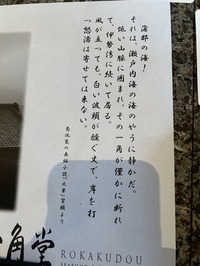 蒲郡の海！
それは、瀬戸内海の海のやうに静かだ。
低い山脈に囲まれ、その一角が僅かに断れ
て、伊勢湾に続いて居る。
風が立つても、白い波頭が騒ぐ丈で、岸を打
つ怒濤は寄せては来ない。
菊池寛の長編小説「火華」冒頭より
角堂
ROKAKUDOU